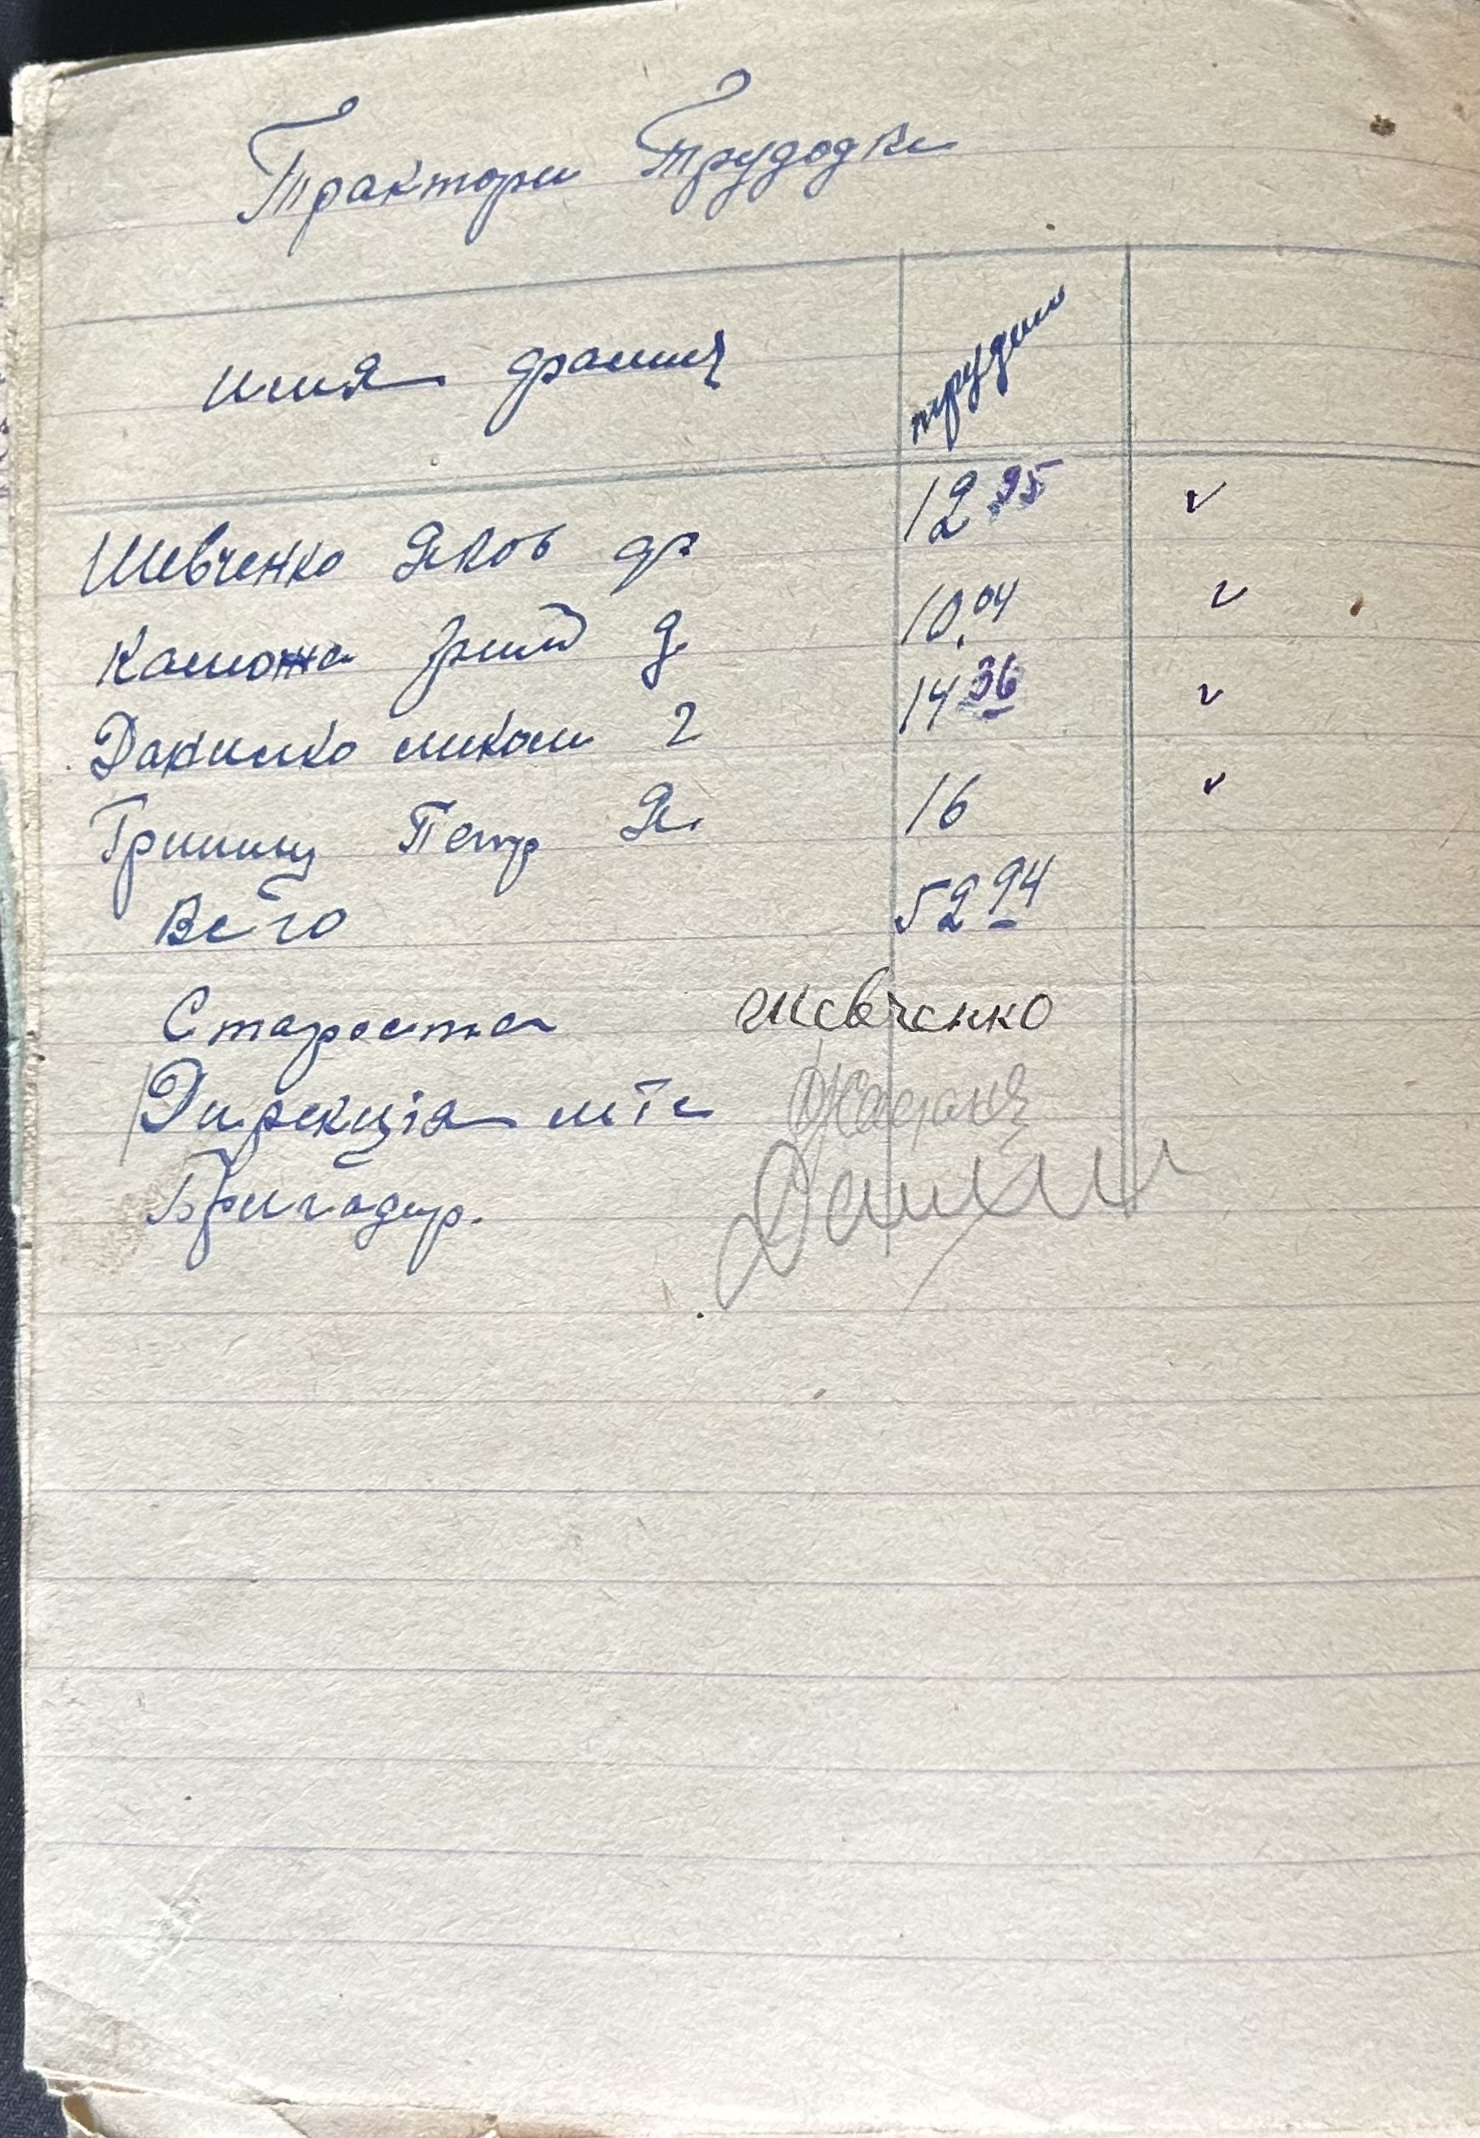 Трактори Трудодни
имя фамил трудни
Шевченко Яков ф 12 95 ✓
Каможна д 10.04 ✓
Данилко микол г 14 36 ✓
Гриниц Петр Я. 16 ✓
Всего 52 94
Староста Шевченко
Дирекція мтс
Бригадир.